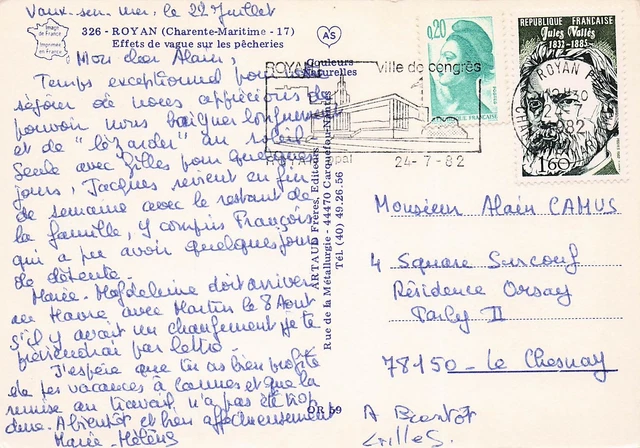 Vaux-sur-mer, le 22 Juillet
Image de France
Imprimée en France
326 - ROYAN (Charente-Maritime - 17)
Effets de vague sur les pêcheries
AS
Couleurs Naturelles
Mon cher Alain,
Temps exceptionnel pour
séjour de nous apprécions de
pouvoir nous baigner longuement
et de "lézarder" au soleil.
Seule avec Gilles pour quelques
jours, Jacques revient en fin
de semaine avec le restant de
la famille, y compris François
qui a pu avoir quelques jours
de détente.
Marie-Magdeleine doit arriver
au Havre avec Martin le 8 Août
S'il y avait un changement je te
préviendrai par lettre.
J'espère que tu as bien profité
de tes vacances à Cannes et que la
remise au travail n'a pas été trop
dure. A bientôt et bien affectueusement
Marie-Hélène
ARTAUD Frères, Editeurs
Rue de la Métallurgie - 44470 Carquefou-Nantes
Tél. (40) 49.26.56
OR 59
ROYAN
Ville de congrès
24-7-82
0,20
REPUBLIQUE FRANÇAISE
Jules Vallès
1832-1885
1,60
ROYAN
1982
Monsieur Alain CAMUS
4 Square Surcouf
Résidence Orsay
Parly II
78150 - Le Chesnay
A Bientôt
Gilles.